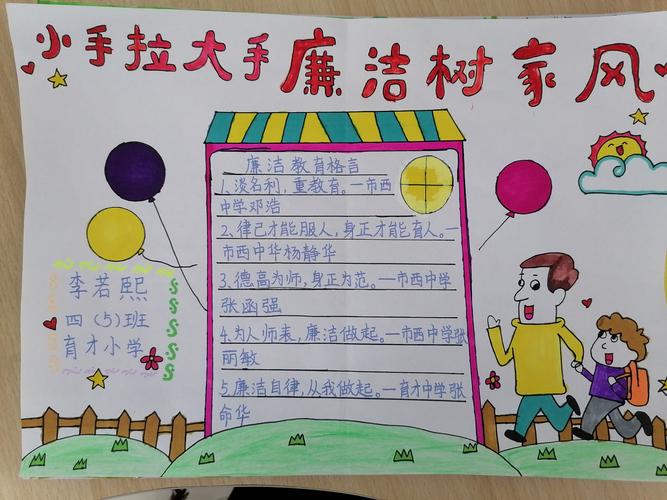 小手拉大手廉洁树家风
廉洁教育格言
1、淡名利，重教育。—市西
中学邓浩
2、律己才能服人，身正才能育人。—
市西中华杨静华
3、德高为师，身正为范。—市西中学
张函强
4、为人师表，廉洁做起。—市西中学张
丽敏
5、廉洁自律，从我做起。—育才中学张
命华
李若熙
四（5）班
育才小学